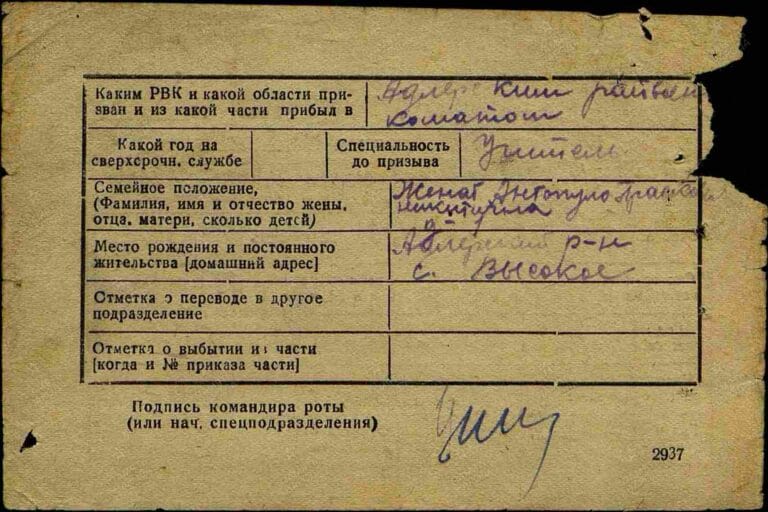 Каким РВК и какой области при-
зван и из какой части прибыл в
Адлерский райвоен
коматом
Какой год на
сверхсрочн. службе
Специальность
до призыва
Учитель
Семейное положение,
(Фамилия, имя и отчество жены,
отца, матери, сколько детей)
Женат Антопуло
Никитична
Место рождения и постоянного
жительства [домашний адрес]
Адлерский р-н
с. Высокое
Отметка о переводе в другое
подразделение
Отметка о выбытии из части
[когда и № приказа части]
Подпись командира роты
(или нач. спецподразделения)
2937